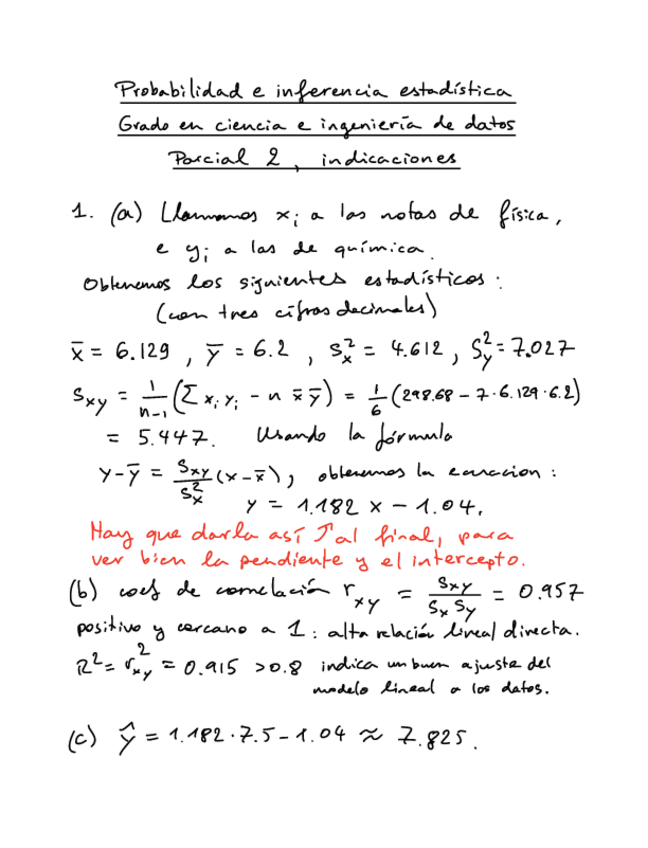 Probabilidad e inferencia estadística
Grado en ciencia e ingeniería de datos
Parcial 2, indicaciones
1. (a) Llamamos xᵢ a las notas de física,
e yᵢ a las de química.
Obtenemos los siguientes estadísticos:
(con tres cifras decimales)
x̄ = 6.129, ȳ = 6.2, Sₓ² = 4.612, S_y² = 7.027
S_xy = 1/(n-1) (Σ xᵢ yᵢ - n x̄ ȳ) = 1/6 (298.68 - 7·6.129·6.2)
= 5.447. Usando la fórmula
y-ȳ = S_xy/Sₓ² (x-x̄), obtenemos la ecuacion:
y = 1.182 x - 1.04.
Hay que darla así ↑ al final, para
ver bien la pendiente y el intercepto.
(b) coef de correlación r_xy = S_xy/(Sₓ S_y) = 0.957
positivo y cercano a 1: alta relación lineal directa.
R² = r_xy² = 0.915 > 0.8 indica un buen ajuste del
modelo lineal a los datos.
(c) ŷ = 1.182·7.5 - 1.04 ≈ 7.825.